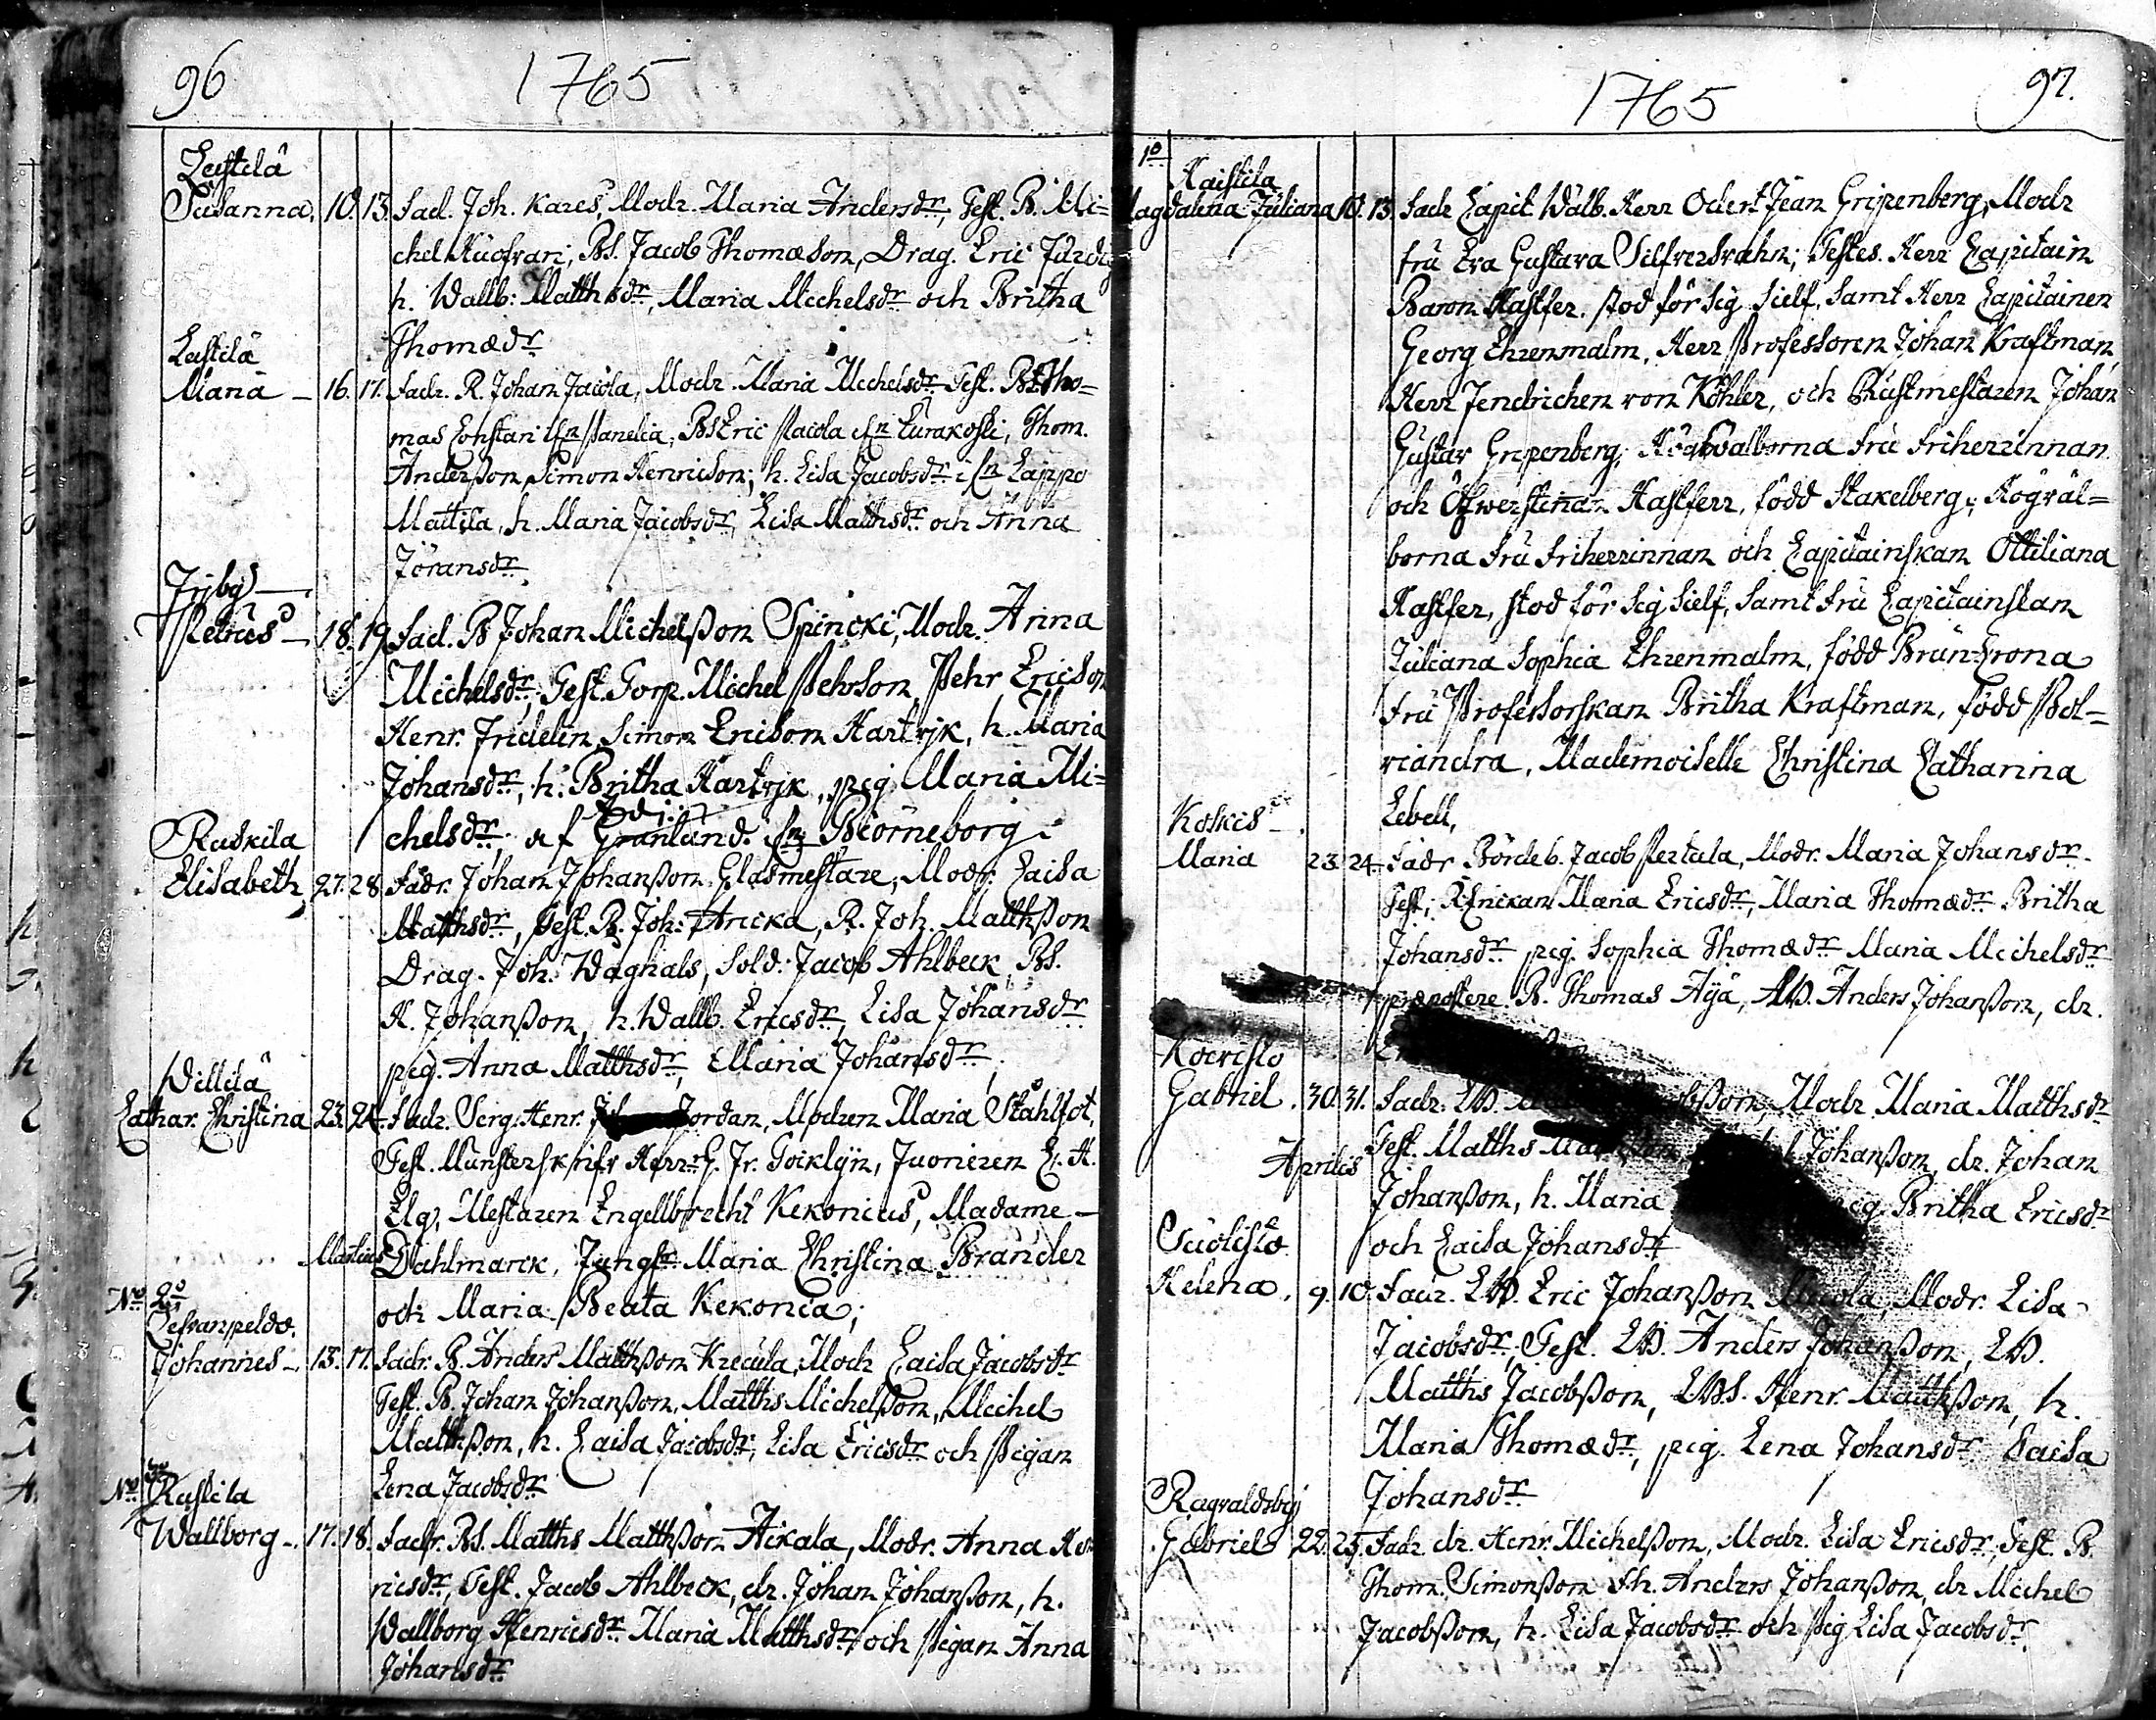 96
1765
Lestilä
Susanna. 10. 13. Fad. Joh. Kares, Modr. Maria Andersdr, Test. B. Mi=
chel Kuofvari, Bs. Jacob Thomæson, Drag. Eric
h. Wallb: Matthsdr, Maria Michelsdr och Britha
Thomædr
Lastilä
Maria – 16. 17. Fadr. R. Johan Jacola, Modr. Maria Michelsdr Test. Bs Tho=
mas i Sn Panelia, Bs Eric i Sn Eurakoski, Thom.
Andersson, Simon Henricson; h. Lisa Jacobsdr i Sn Lappo
Mattila, h. Maria Jacobsdr, Lisa Matthsdr och Anna
Jöransdr
Petrus – 18. 19. Fad. B Johan Michelsson Spincki, Modr. Anna
Michelsdr; Test. Corp. Michel Pehrson, Pehr Ericson
Henr. Fridelin, Simon Ericson Hartvjk, h. Maria
Johansdr, h. Britha Hartvjk, pig. Maria Mi=
chelsdr; af Granlund. i Sn Biörneborg.
Elisabeth, 27. 28. Fadr. Johan Johansson Glasmestare, Modr. Caisa
Matthsdr, Test. B. Joh: Aricka, R. Joh. Matthsson
Drag. Joh. Waghals, Sold. Jacob Ahlbeck, Bs.
H. Johansson, h. Wallb. Ericsdr, Lisa Johansdr
pig. Anna Matthsdr, Maria Johansdr;
Willilä
Cathar. Christina 23. 24. Fadr. Serg. Henr. Jordan, Modren Maria Stahlfot,
Test. Munsterskrifv Herr G. Fr. Juonieren E. H.
Elg, Mestaren Engellbrecht Kekonius, Madame –
Martius Dahlmarck, Jungfr Maria Christina Brander
och Maria Beata Kekonia;
No 2o
Johannes – 15. 17. Fadr. B. Anders Matthsson Krecula, Modr Caisa Jacobsdr
Test. B. Johan Johansson, Matths Michelsson, Michel
Matthsson, h. Caisa Jacobsdr, Lisa Ericsdr och Pigan
Lena Jacobsdr
No 3o
Rastila
Wallborg –. 17. 18. Fadr. Bs. Matths Matthsson Aikala, Modr. Anna Hen
ricsdr, Test. Jacob Ahlbeck, dr. Johan Johansson, h.
Wallborg Henricsdr Maria Matthsdr och Pigan Anna
Johansdr
1765
97.
1o
Haistila
Magdalena Juliana 10. 13. Fadr Capit Wälb. Herr Odert Jean Gripenberg, Modr
Fru Eva Gustava Silfversvahn; Testes. Herr Capitain
Baron Hastfer. stod för sig sielf, samt Herr Capitainen
Georg Ehrenmalm, Herr Professoren Johan Kraftman
Herr Fendrichen von Köhler, och Rustmestaren Johan
Gustav Gripenberg; Högwälborna Fru Friherrinnan
och Öfwerstinan Hastferr, född Stakelberg; Högväl=
borna Fru Friherrinnan och Capitainskan Ottiliana
Hastfer, stod för sig sielf, samt Fru Capitainskan
Juliana Sophia Ehrenmalm, född Brun Crona
Fru Professorskan Britha Kraftman, född Pol=
viandra, Mademoiselle Christina Catharina
Lebell,
Koskis –
Maria 23. 24. Fadr Bördeb. Jacob Pertula, Modr. Maria Johansdr.
Test; Maria Ericsdr, Maria Thomædr Britha
Johansdr pig. Sophia Thomædr Maria Michelsdr
B. Thomas Äijä, LB. Anders Johansson, dr.
Koivisto
Gabriel. 30. 31. Fadr. LB. Modr Maria Matthsdr
Test. Matths Johansson, dr. Johan
Aprilis
Johansson, h. Maria Britha Ericsdr
och Caisa Johansdr
Suolisto
Helena. 9. 10. Fadr. LB. Eric Johansson Modr. Lisa
Jacobsdr; Test. LB. Anders Johansson, LB.
Matths Jacobsson, LBs. Henr. Matthsson, h.
Maria Thomædr, pig. Lena Johansdr Caisa
Johansdr
Ragvaldsbÿ
Gabriel 22. 25. Fadr. dr. Henr. Michelsson, Modr. Lisa Ericsdr, Test. B.
Thom. Simonsson Sh. Anders Johansson, dr Michel
Jacobsson, h. Lisa Jacobsdr och Pig Lisa Jacobsdr